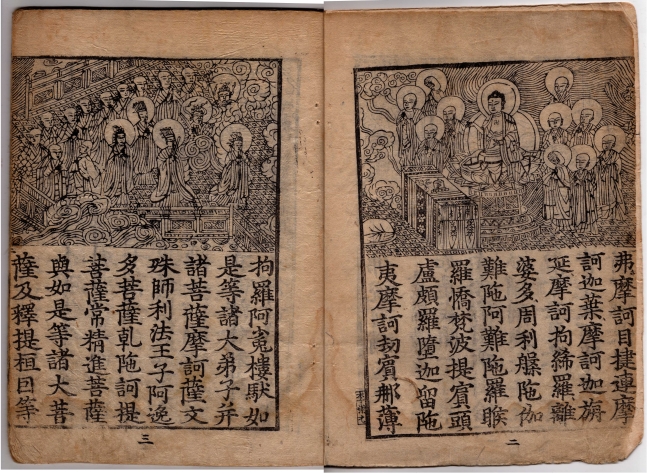 弗摩訶目揵連摩
訶迦葉摩訶迦旃
延摩訶拘絺羅離
婆多周利槃陁伽
難陁阿難陁羅睺
羅憍梵波提賓頭
盧頗羅墮迦留陁
夷摩訶刼賓那薄
二
拘羅阿㝹樓馱如
是等諸大弟子并
諸菩薩摩訶薩文
殊師利法王子阿逸
多菩薩乾陁訶提
菩薩常精進菩薩
與如是等諸大菩
薩及釋提桓因等
三